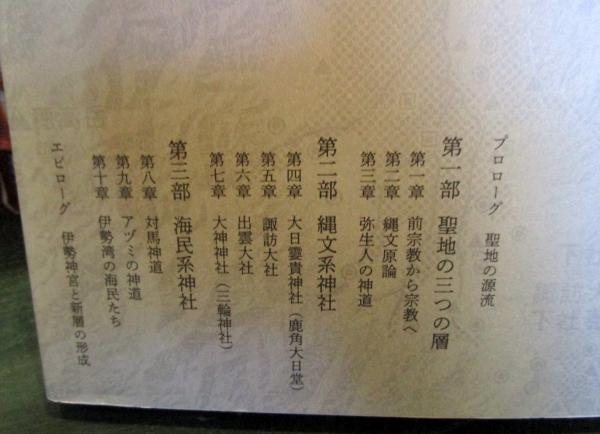 プロローグ 聖地の源流
第一部 聖地の三つの層
第一章 前宗教から宗教へ
第二章 縄文原論
第三章 弥生人の神道
第二部 縄文系神社
第四章 大日霊貴神社（鹿角大日堂）
第五章 諏訪大社
第六章 出雲大社
第七章 大神神社（三輪神社）
第三部 海民系神社
第八章 対馬神道
第九章 アヅミの神道
第十章 伊勢湾の海民たち
エピローグ 伊勢神宮と新層の形成